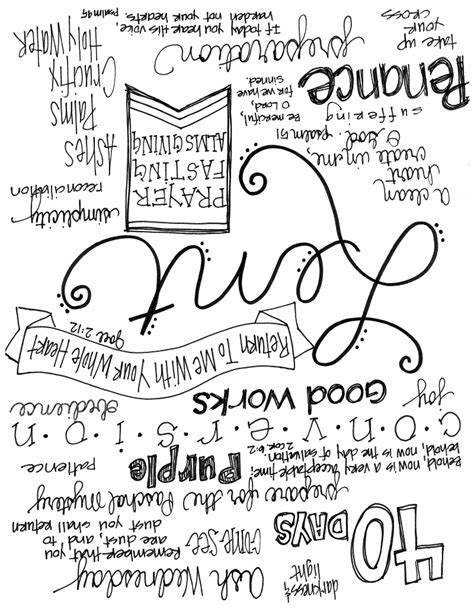 darkness &
light
40
DAYS
Ash Wednesday
come-see
Remember that you
are dust, and to
dust you shall return
prepare for the Paschal mystery
Behold, now is a very acceptable time;
behold, now is the day of salvation.
2 Cor. 6:2
Purple
patience
C·O·N·V·E·R·S·I·O·N
joy
Good Works
obedience
Return To Me With Your Whole Heart
Joel 2:12
Lent
A clean
heart
create in me,
O God. psalm 51
PRAYER
FASTING
ALMSGIVING
simplicity
reconciliation
suffering
Be merciful,
O Lord,
for we have
sinned.
Ashes
Palms
Crucifix
Holy Water
Penance
take up
your
cross
preparation
If today you hear his voice,
harden not your hearts.
Psalm 95